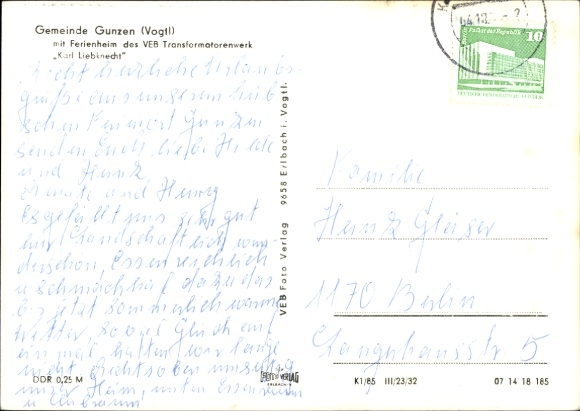 Gemeinde Gunzen (Vogtl)
mit Ferienheim des VEB Transformatorenwerk
„Karl Liebknecht"
Recht herzliche Urlaubs-
grüße aus unserem hüb
schen Kurort Gunzen
senden Euch liebe Hilde
und Heinz
Renate und Henry
Es gefällt uns sehr gut
hier Landschaftlich wun-
derschön, Essen reichlich
u schmackhaft dazu das
bis jetzt sommerlich warme
Wetter so viel Glück auf
ein mal hatten wir lange
nicht. Rechts oben
unser Heim, unten Essenraum
u
DDR 0,25 M
VEB Foto Verlag 9658 Erlbach i. Vogtl.
FOTO VERLAG
ERLBACH
04.10.
Palast der Republik
10
DEUTSCHE DEMOKRATISCHE REPUBLIK
Familie
Heinz Gläser
1170 Berlin
Langhansstr 5
K1/85 III/23/32 07 14 18 185